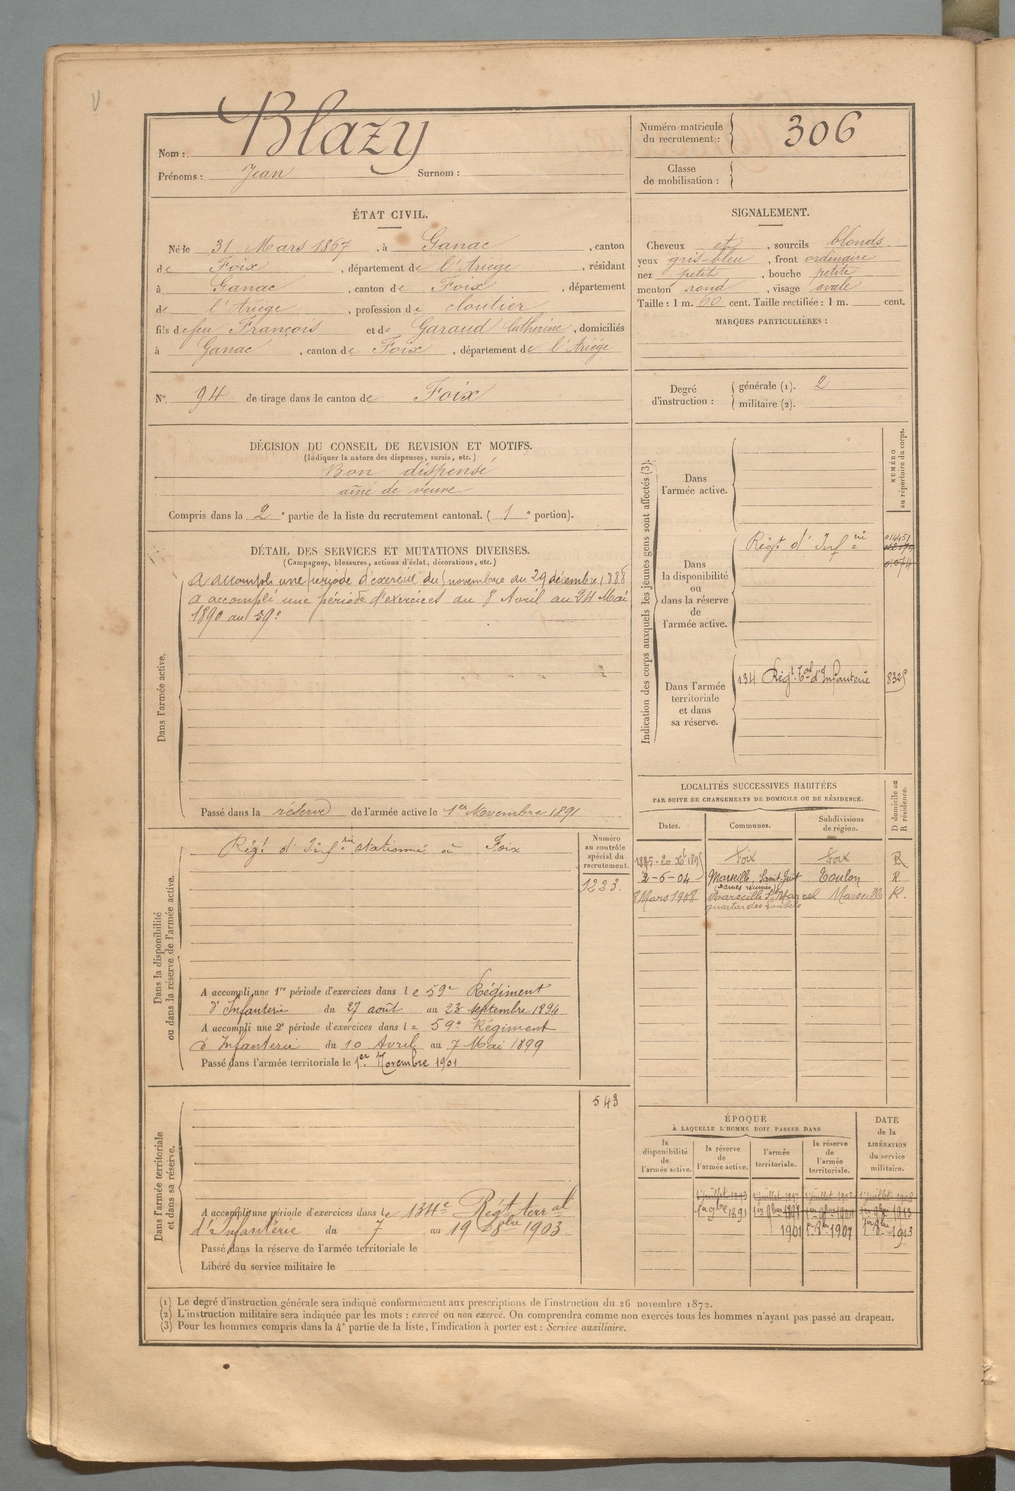 Nom : Blazy
Prénoms : Jean Surnom :
Numéro matricule
du recrutement : 306
Classe
de mobilisation :
ÉTAT CIVIL.
Né le 31 Mars 1867, à Ganac, canton
de Foix, département de l'Ariège, résidant
à Ganac, canton de Foix, département
de l'Ariège, profession de cloutier
fils de feu François et de Garaud Catherine, domiciliés
à Ganac, canton de Foix, département de l'Ariège
N° 94 de tirage dans le canton de Foix
SIGNALEMENT.
Cheveux et, sourcils blonds
yeux gris-bleu, front ordinaire
nez petit, bouche petite
menton rond, visage ovale
Taille : 1 m. 60 cent. Taille rectifiée : 1 m. cent.
MARQUES PARTICULIÈRES :
Degré
d'instruction :
générale (1). 2
militaire (2).
DÉCISION DU CONSEIL DE REVISION ET MOTIFS.
(Indiquer la nature des dispenses, sursis, etc.)
Bon dispensé
aîné de veuve
Compris dans la 2e partie de la liste du recrutement cantonal. (1e portion).
DÉTAIL DES SERVICES ET MUTATIONS DIVERSES.
(Campagnes, blessures, actions d'éclat, décorations, etc.)
Dans l'armée active.
A accompli une période d'exercice du novembre au 29 décembre 1888
A accompli une période d'exercices du 8 Avril au 24 Mai
1890 au 59e
Passé dans la réserve de l'armée active le 1er Novembre 1891
Indication des corps auxquels les jeunes gens sont affectés (3).
NUMÉRO
au répertoire du corps.
Dans
l'armée active.
Dans
la disponibilité
ou
dans la réserve
de
l'armée active.
Régt d'Inf.rie
Dans l'armée
territoriale
et dans
sa réserve.
134 Régt Tal d'Infanterie
LOCALITÉS SUCCESSIVES HABITÉES
PAR SUITE DE CHANGEMENTS DE DOMICILE OU DE RÉSIDENCE.
D domicile ou
R résidence.
Dates. Communes. Subdivisions
de région.
Foix Foix R
2-6-04 Marseille, Toulon R
8 Mars 1908 Marseille St Marcel Marseille R.
Dans la disponibilité
ou dans la réserve de l'armée active.
Régt d'Inf.rie stationné à Foix
Numéro
au contrôle
spécial du
recrutement.
1223.
A accompli une 1re période d'exercices dans le 59e Régiment
d'Infanterie du 27 août au 23 septembre 1894
A accompli une 2e période d'exercices dans le 59e Régiment
d'Infanterie du 10 Avril au 7 Mai 1899
Passé dans l'armée territoriale le 1er Novembre 1901
Dans l'armée territoriale
et dans sa réserve.
543
A accompli une période d'exercices dans le 134e Régt terral
d'Infanterie du 7 au 19 8bre 1903
Passé dans la réserve de l'armée territoriale le
Libéré du service militaire le
ÉPOQUE
À LAQUELLE L'HOMME DOIT PASSER DANS
DATE
de la
LIBÉRATION
du service
militaire.
la
disponibilité
de
l'armée active.
la réserve
de
l'armée active.
l'armée
territoriale.
la réserve
de
l'armée
territoriale.
1er 9bre 1891
1901 1907 1913
(1) Le degré d'instruction générale sera indiqué conformément aux prescriptions de l'instruction du 26 novembre 1872.
(2) L'instruction militaire sera indiquée par les mots : exercé ou non exercé. On comprendra comme non exercés tous les hommes n'ayant pas passé au drapeau.
(3) Pour les hommes compris dans la 4e partie de la liste, l'indication à porter est : Service auxiliaire.